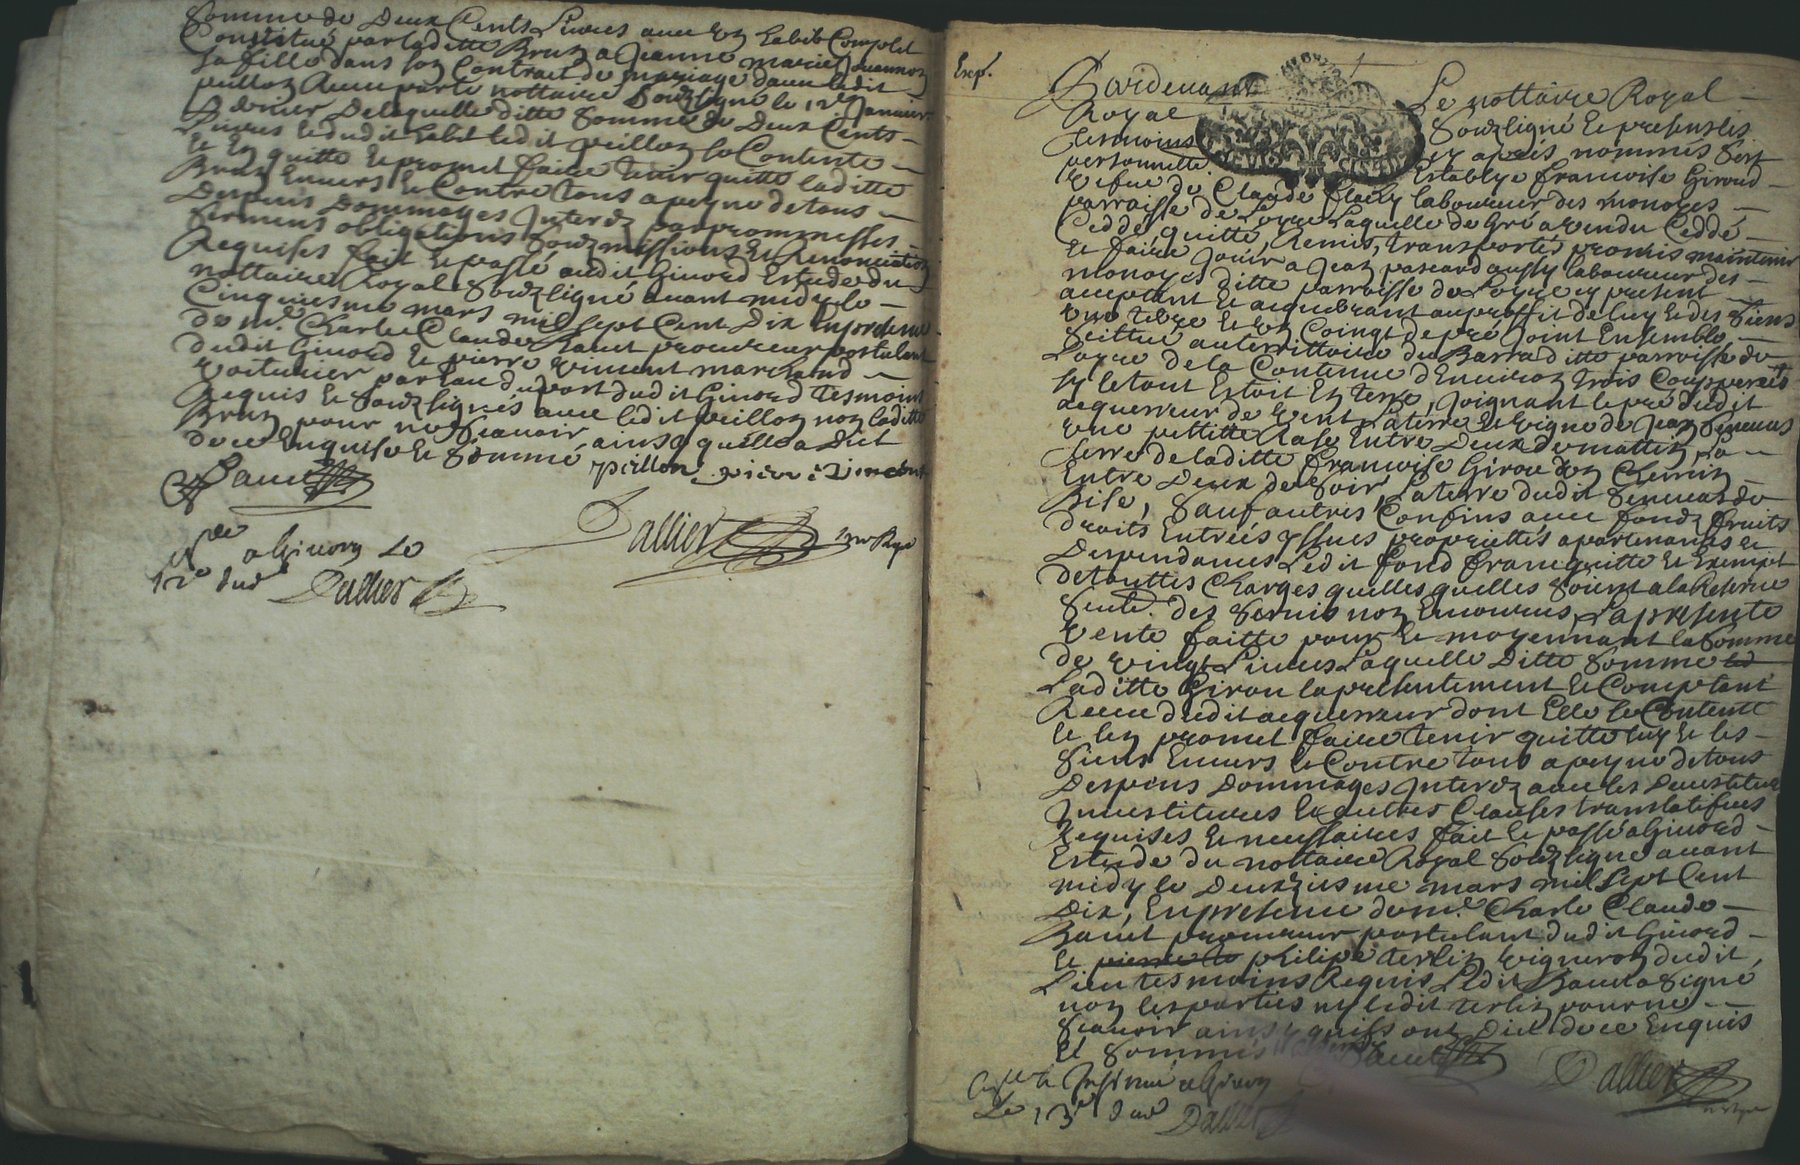 Somme de Deux Cents Livres avec un habit Complet
Constitué par laditte Brun a Jeanne marie Jouannon
Sa fille dans son Contrat de mariage dauec ledit
peillon Receu par le nottaire Soubzsigné le 12e Januier
Dernier De laquelle ditte Somme de Deux Cents
Liures et dudit habit ledit peillon se Contente
et En quitte et promet faire tenir quitte laditte
Brun Enuers et Contre tous a peyne de tous
Despens Dommages Interez par promesses
Sermens obligations Soubzmissions et Renonciations
Requises fait et passé audit Giuord Estude du
nottaire Royal Soubzsigné auant midy le
Cinquiesme mars mil sept Cent Dix En presence
de me. Charle Claude Bauet procureur postulant
dudit Giuord et pierre Vincent marchand
voiturier par Eau du port dudit Giuord tesmoins
Requis et Soubzsignés auec ledit peillon non laditte
Brun pour ne Scauoir ainsy quelle a Dict
de ce Enquise et Sommé
Bauet peillon pierre Vincent
Dallier no Rye
a Giuors Le
12e dud Dallier
Exp.
Pardeuant Le nottaire Royal
Royal Soubzsigné et presents les
tesmoins cy aprés nommés Sest
personnelle. Establye francoise Giroud
vefue de Claude laboureur des monoyes
parroisse de Loyre Laquelle de Gré a vendu Ceddé
Ceddé, quitté, Remis, transporté promis maintenir
et faire Jouir a Jean pascard aussy laboureur des
monoyes ditte parroisse de Loyre cy present
acceptant et acquerant au proffit de luy et des Siens
une terre et un Coingt de pré Joint Ensemble
Scittué au territtoire du Barra ditte parroisse de
Loyre de la Contenue d'Enuiron trois Coupperées
sy le tout Estoit En terre, Joignant le pré dudit
acquerreur de vent La terre et vigne de Jean Seneuas
une pettitte Rase Entre Deux de mattin, La
terre de laditte francoise Girou un Chemin
Entre Deux de Soir, La terre dudit Seneuas de
Bise, Sauf autres Confins auec fondz fruits
droits Entrées yssues proprietés apartenances et
Despendances Ledit fond franc quitte et Exempt
de touttes Charges quelles quelles Soient a la Reserue
Seule des Seruis non Encourus, La presente
vente faitte pour et moyennant la Somme
de vingt Liures Laquelle Ditte Somme
Laditte Girou la presentement et Comptant
Receu dudit acquerreur dont Elle se Contente
et len promet faire tenir quitte luy et les
Siens Enuers et Contre tous a peyne de tous
Despens Dommages Interez auec les Deuestitures
Inuestitures Et autres Clauses translatifues
Requises et necessaires fait et passé a Giuord
Estude du nottaire Royal Soubzsigné auant
midy le Deuxziesme mars mil sept Cent
Dix, En presence de me. Charle Claude
Bauet procureur postulant dudit Giuord
et pierre le philipe terlin vigneron dudit
Lieu tesmoins Requis Ledit Bauet a Signé
non les parties ny ledit terlin pour ne
Scauoir ainsy quils ont Dict de ce Enquis
Et Sommés Bauet
Dallier
Insinué a Giuors
Le 13e dud Dallier